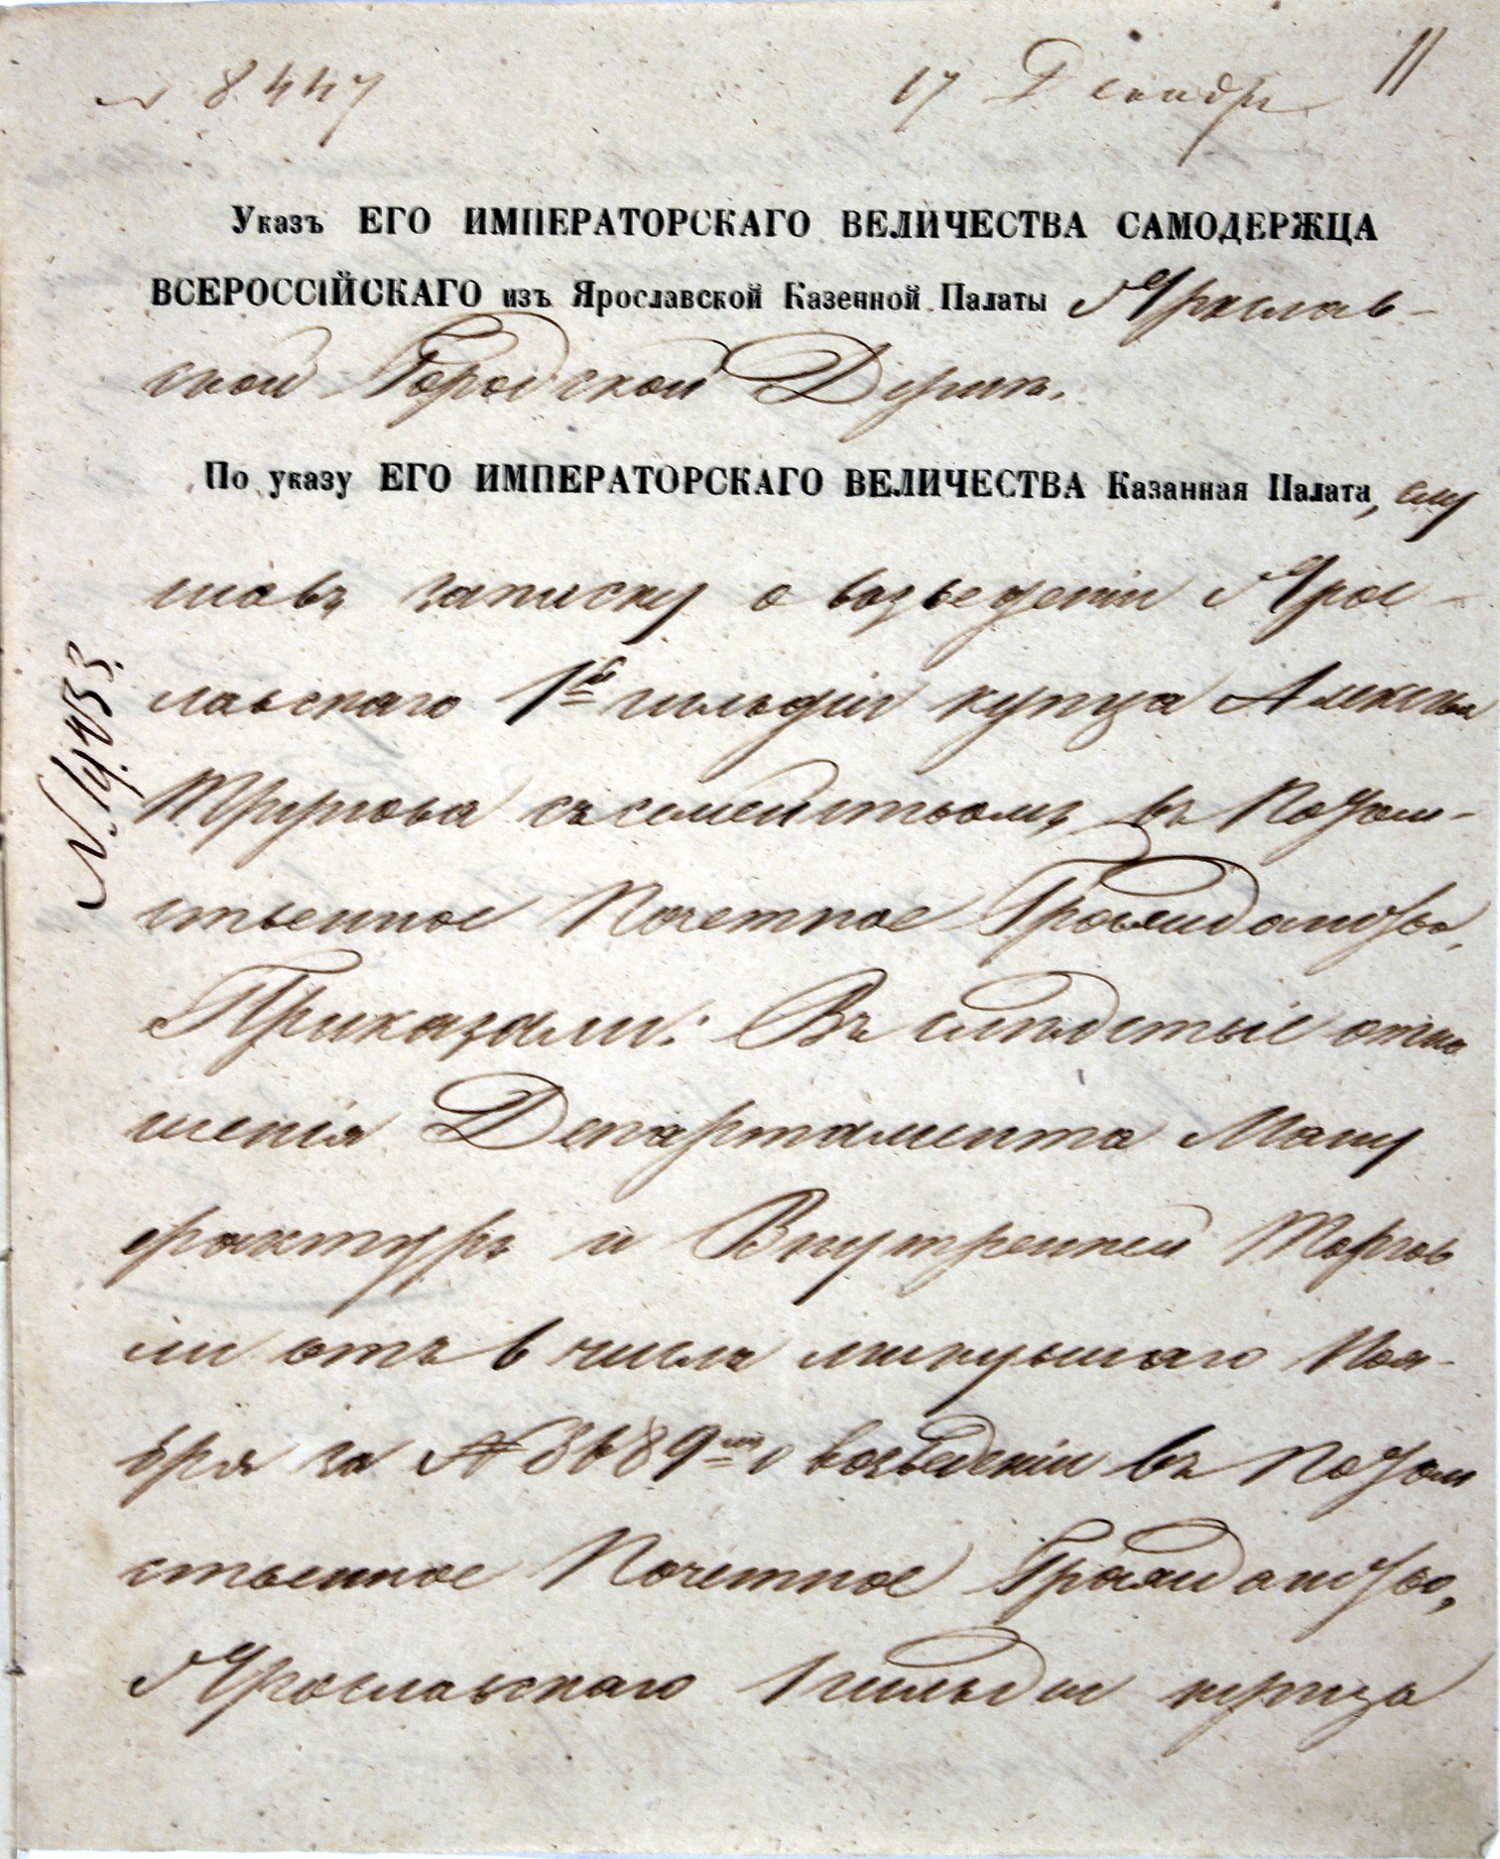 № 8447 17 Декабря 11
Указъ ЕГО ИМПЕРАТОРСКАГО ВЕЛИЧЕСТВА САМОДЕРЖЦА
ВСЕРОССІЙСКАГО изъ Ярославской Казенной Палаты Ярослав-
ской Городской Думѣ.
По указу ЕГО ИМПЕРАТОРСКАГО ВЕЛИЧЕСТВА Казанная Палата, слу
шавъ записку о возведеніи Ярос-
лавскаго 1й гильдіи купца Алексѣя
съ семействомъ въ Потом-
ственное Почетное Гражданство,
Приказали: Въ слѣдствіе отно
шенія Департамента Ману
фактуръ и Внутренней Торгов
ли отъ 6 числа минувшаго Ноя-
бря за № о возведеніи въ Потом
ственное Почетное Гражданство,
Ярославскаго 1 гильдіи купца